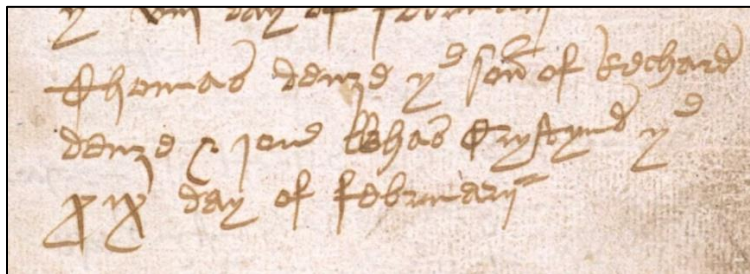 y viij day of februarij
Thomas denze yᵉ son of Rechard
denze & jone Whas Crystynd yᵉ
xix day of februarij